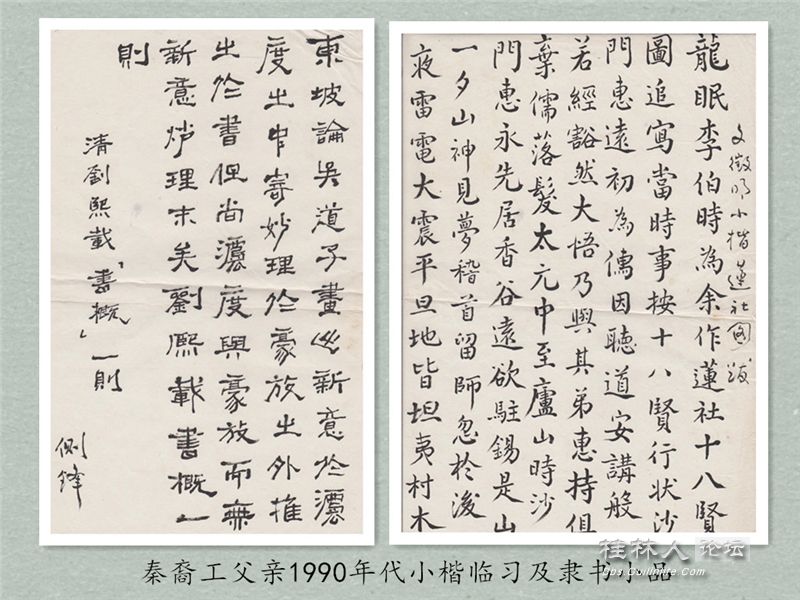 東坡論吳道子畫出新意於灋
度之中寄妙理於豪放之外推
之於書但尚灋度與豪放而無
新意妙理末矣劉熙載書概一
則
清劉熙載「書概」一則
側鋒
文徵明小楷蓮社圖跋
龍眠李伯時為余作蓮社十八賢
圖追寫當時事按十八賢行狀沙
門惠遠初為儒因聽道安講般
若經豁然大悟乃與其弟惠持俱
棄儒落髮太元中至廬山時沙
門惠永先居香谷遠欲駐錫是山
一夕山神見夢稽首留師忽於後
夜雷電大震平旦地皆坦夷村木
桂林人论坛
秦裔工父亲1990年代小楷临习及隶书小品